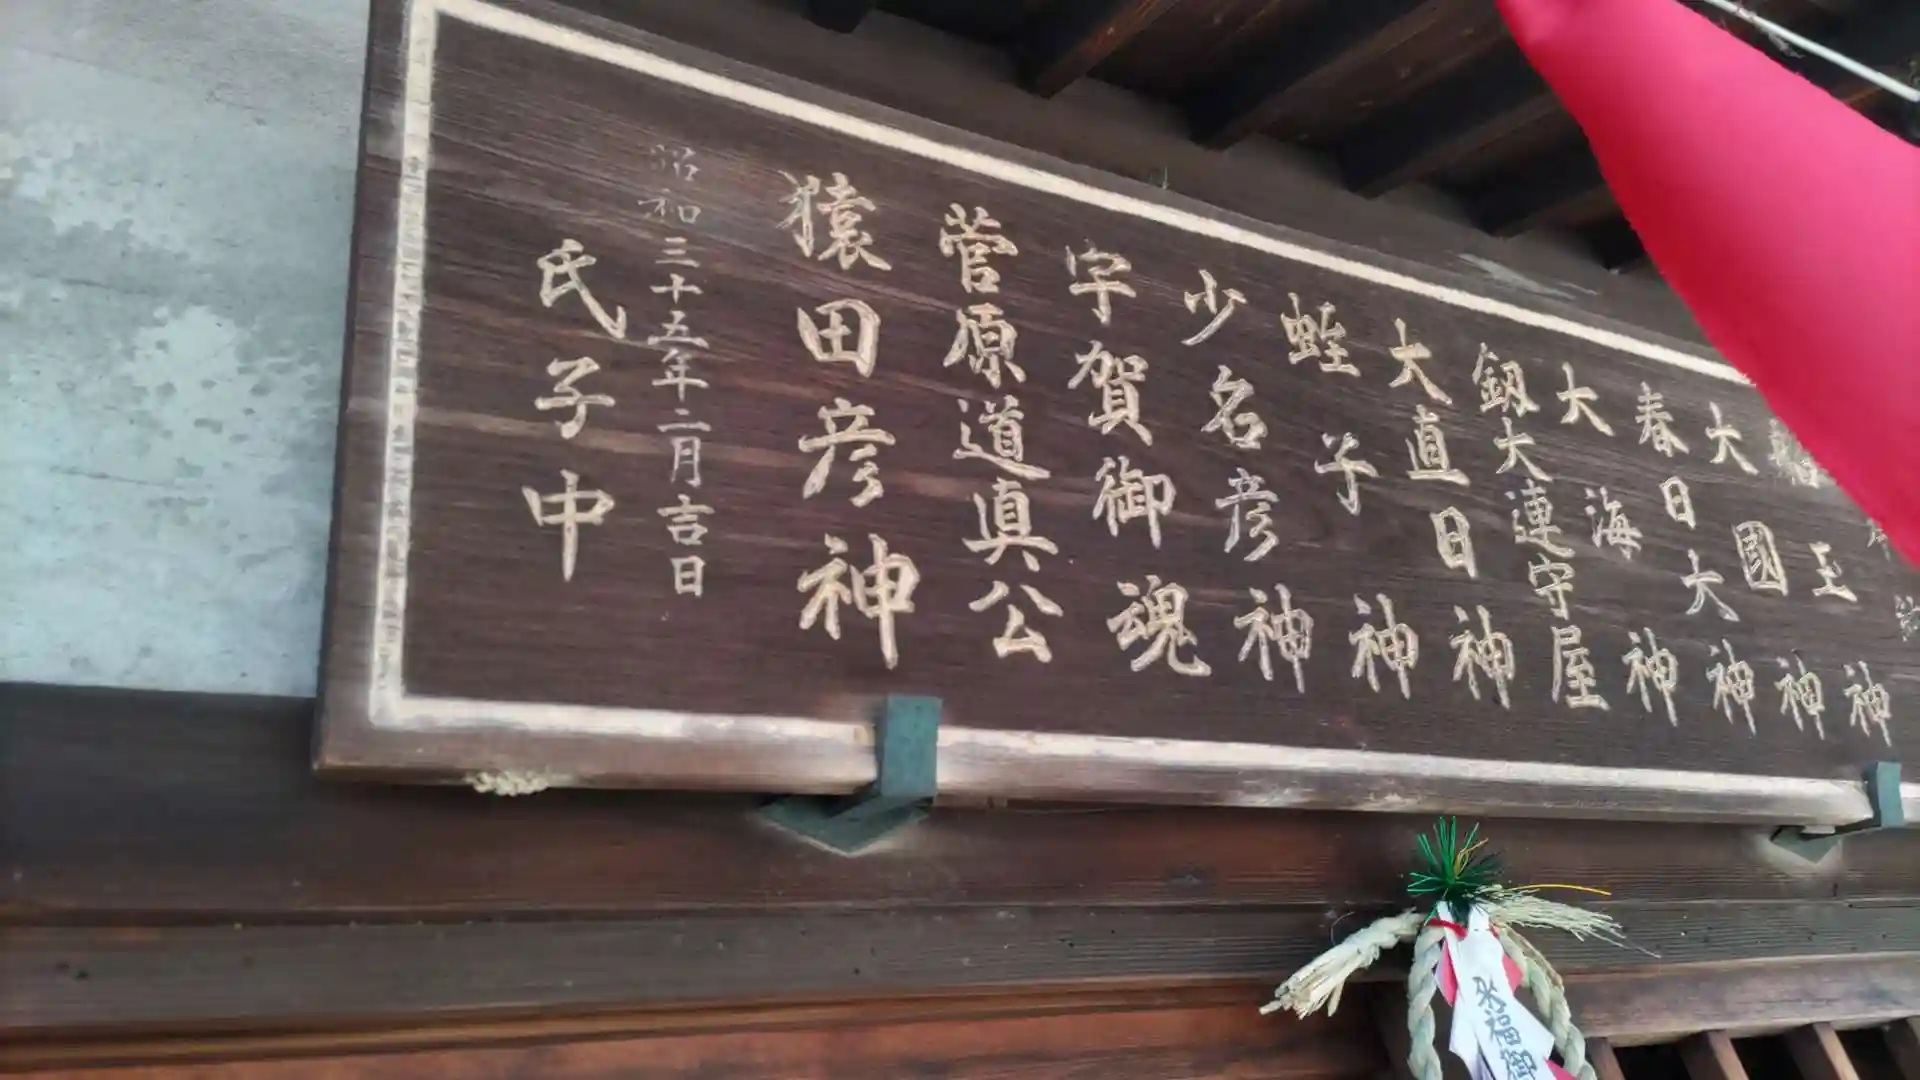 玉神
大國神
春日大神
大海神
釼大連守屋
大直日神
蛭子神
少名彦神
宇賀御魂
菅原道真公
猿田彦神
昭和三十五年二月吉日
氏子中
来福御